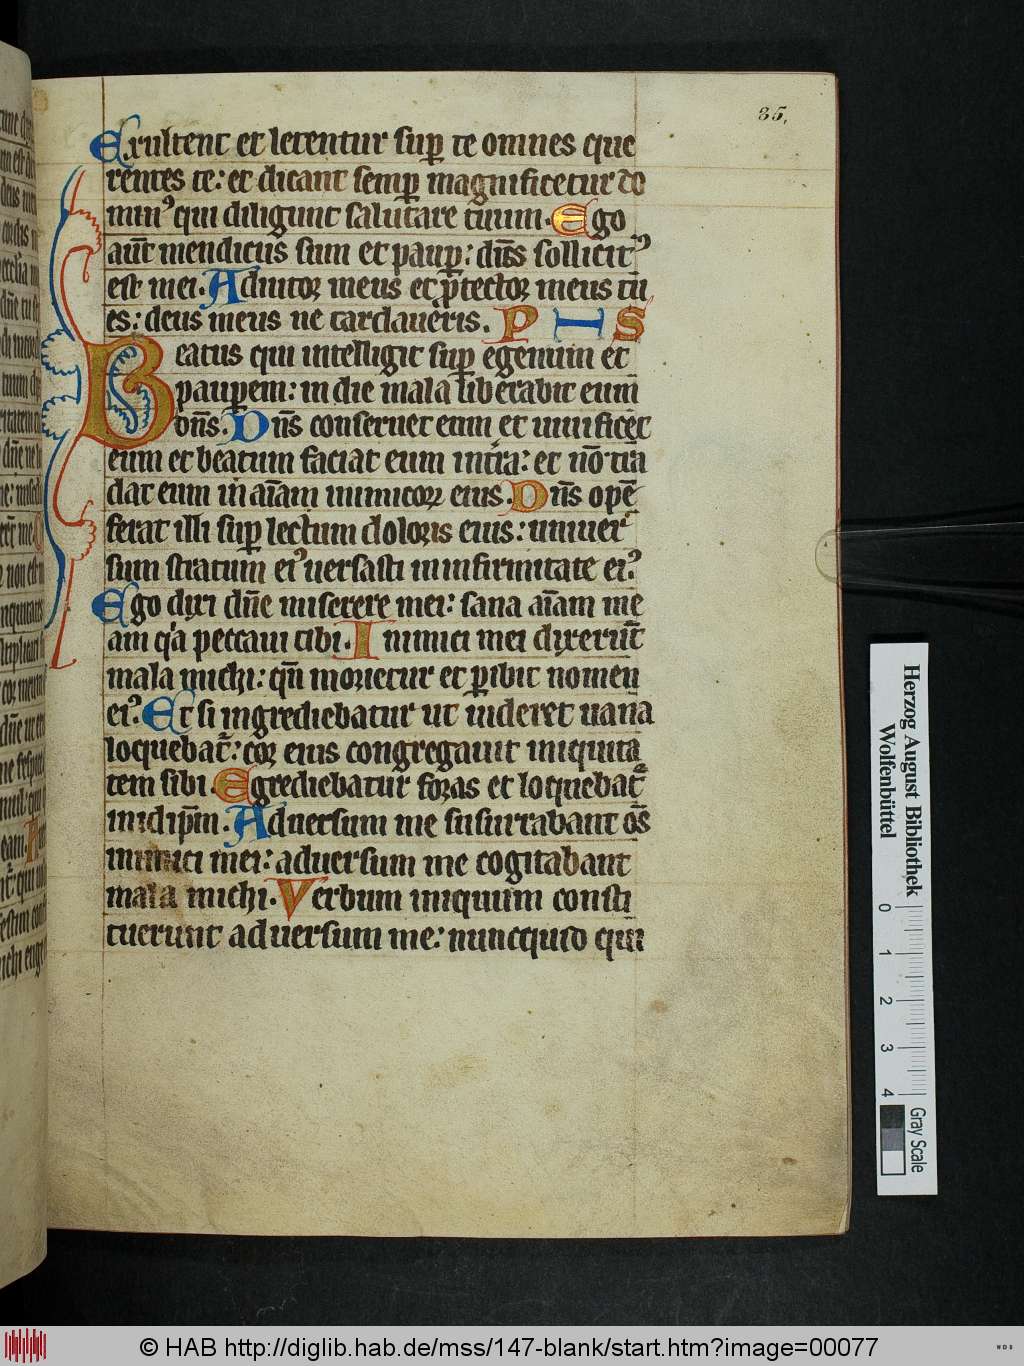 35,
Exultent et letentur sup̄ te omnes que
rentes te: et dicant semp̄ magnificetur do
minꝰ qui diligunt salutare tuum. Ego
aut̄ mendicus sum et paup̄: dn̄s sollicitꝰ
est mei. Adiutor meus et ꝓtector meus tu
es: deus meus ne tardaueris. P H S
Beatus qui intelligit sup̄ egenum et
paup̄em: in die mala liberabit eum
dn̄s. Dn̄s conseruet eum et uiuificet
eum et beatum faciat eum in tr̄a: et nō tra
dat eum in aīam inimicoꝝ eius. Dn̄s opē
ferat illi sup̄ lectum doloris eius: uniuer
sum stratum eiꝰ uersasti in infirmitate eiꝰ.
Ego dixi dn̄e miserere mei: sana aīam me
am q̇a peccaui tibi. Inimici mei dixerūt
mala michi: qn̄ morietur et ꝑibit nomen
eiꝰ. Et si ingrediebatur ut uideret uana
loquebat᷑: cor eius congregauit iniquita
tem sibi. Egrediebatur foras et loquebat᷑
in idip̄m. Aduersum me susurrabant om̄s
inimici mei: aduersum me cogitabant
mala michi. Verbum iniquum consti
tuerunt aduersum me: nuncquid qui
Herzog August Bibliothek
Wolfenbüttel
0 1 2 3 4
Gray Scale
© HAB http://diglib.hab.de/mss/147-blank/start.htm?image=00077